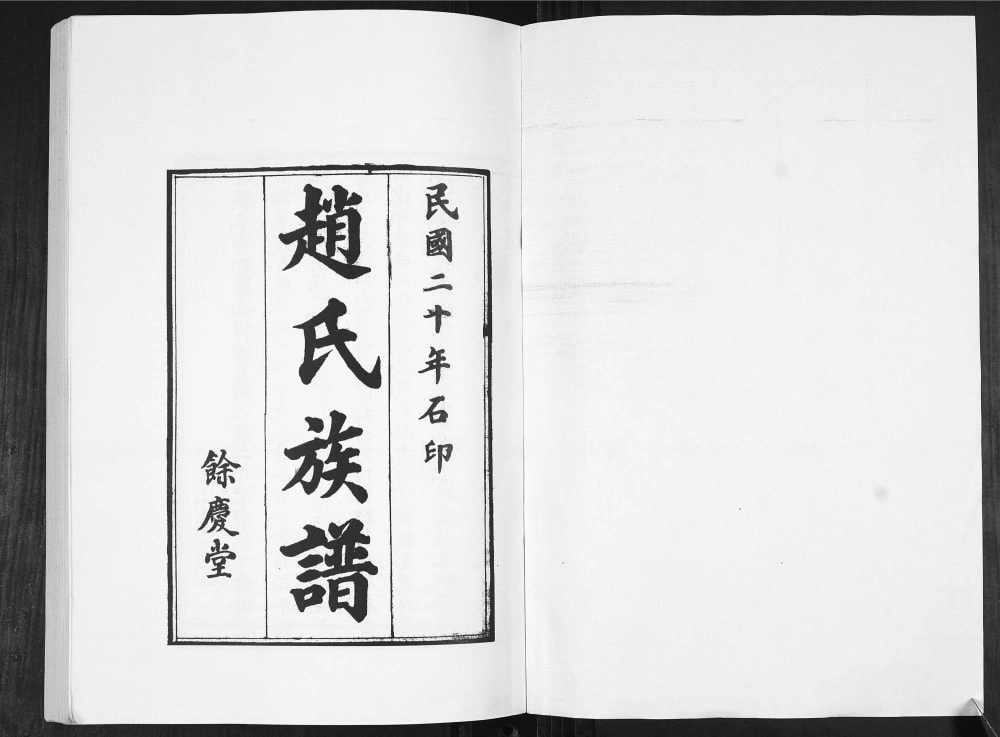 民國二十年石印
趙氏族譜
餘慶堂